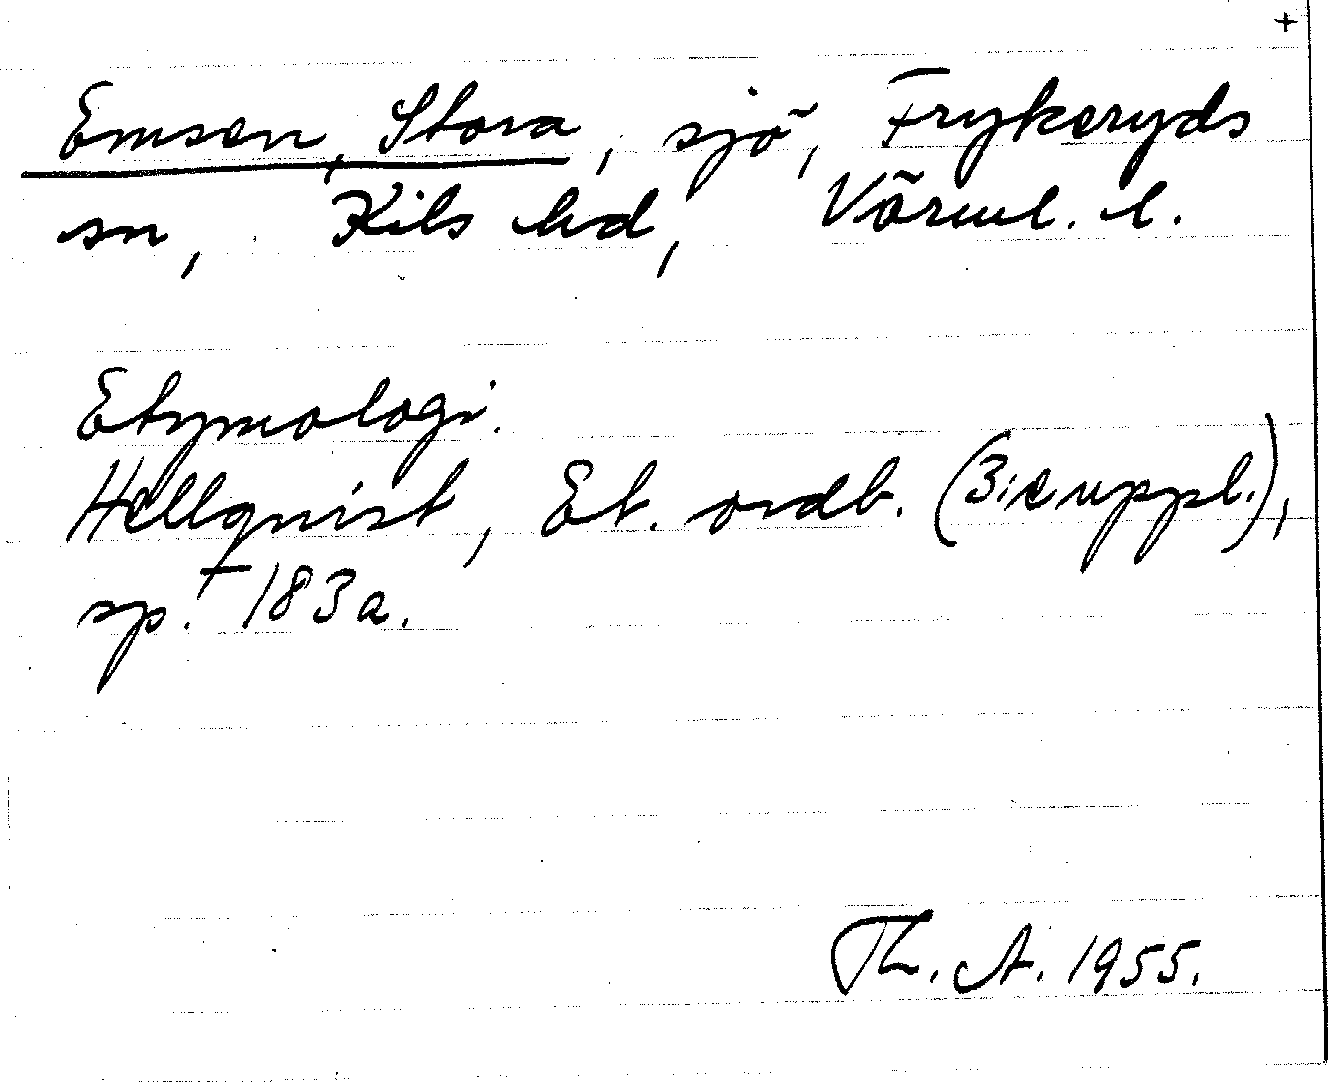 +
Emsen, Stora, sjö, Frykeruds
sn, Kils hd, Värml. l.
Etymologi.
Hellquist, Et. ordb. (3:e uppl.),
sp. 183a.
Th. A. 1955.